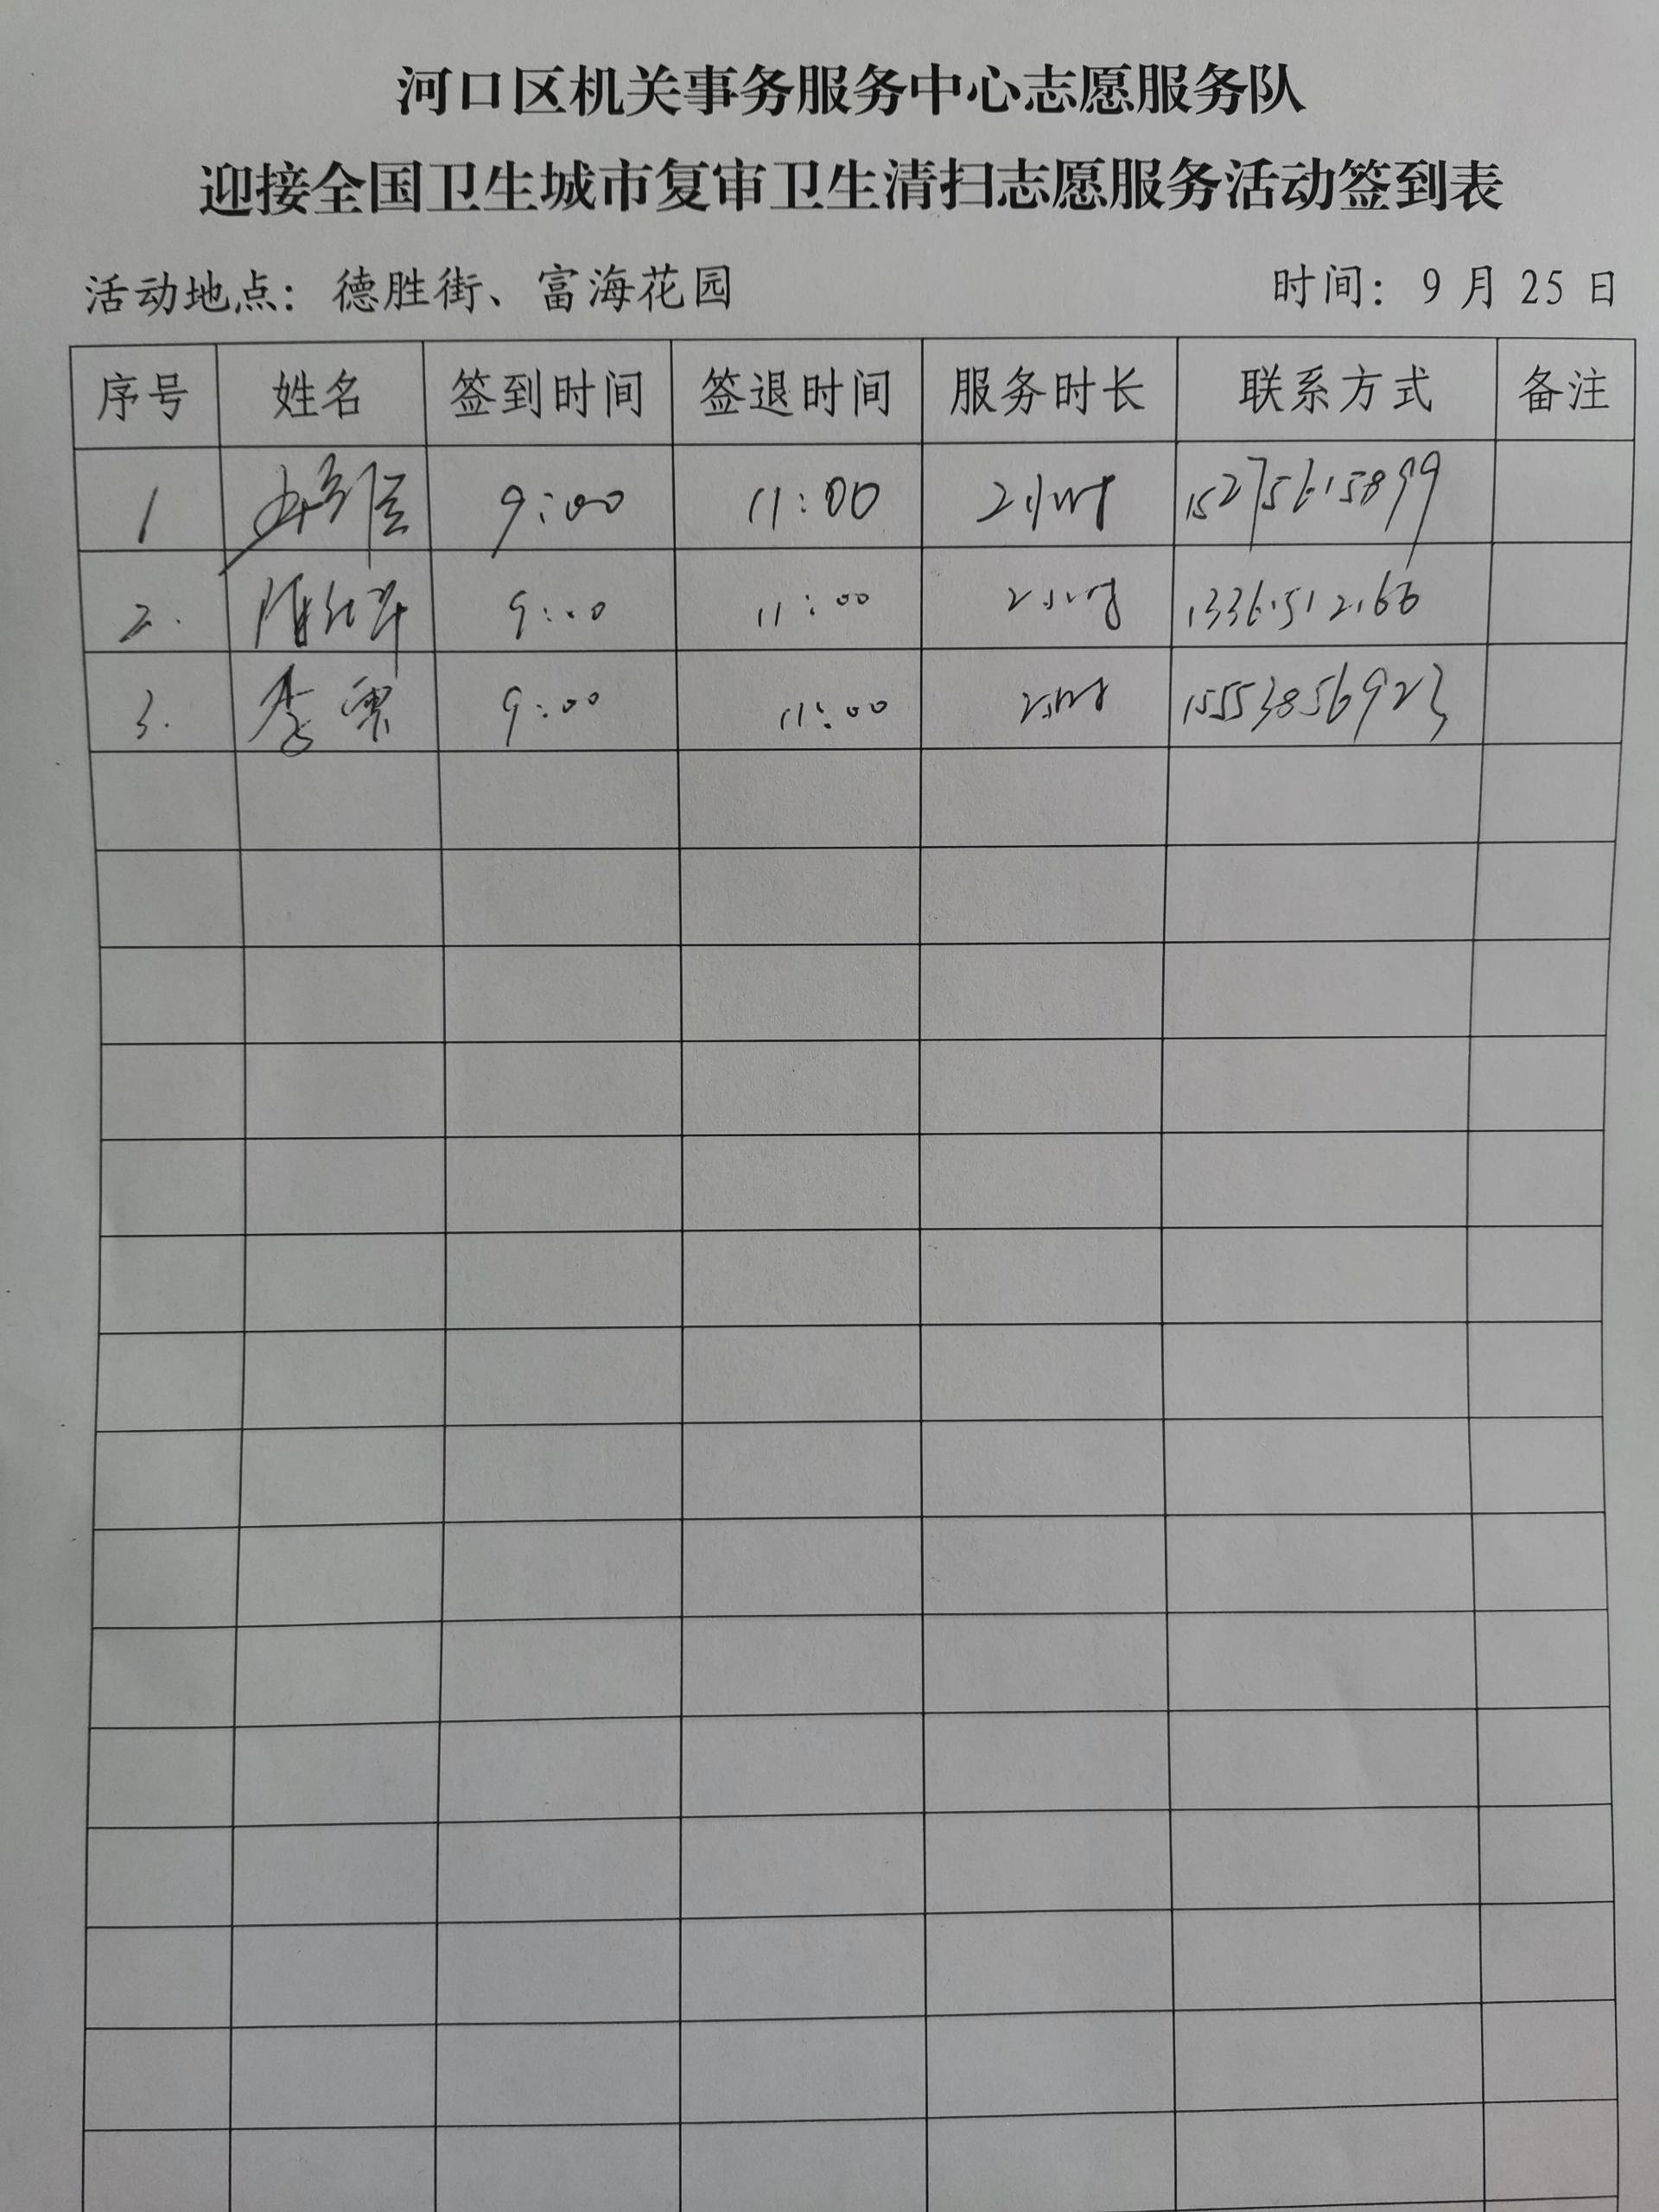 河口区机关事务服务中心志愿服务队
迎接全国卫生城市复审卫生清扫志愿服务活动签到表
活动地点：德胜街、富海花园 时间：9月25日
序号 姓名 签到时间 签退时间 服务时长 联系方式 备注
1 9:00 11:00 2小时 15275615899
2. 9:00 11:00 2小时
3. 李 9:00 11:00 2小时 15553856923